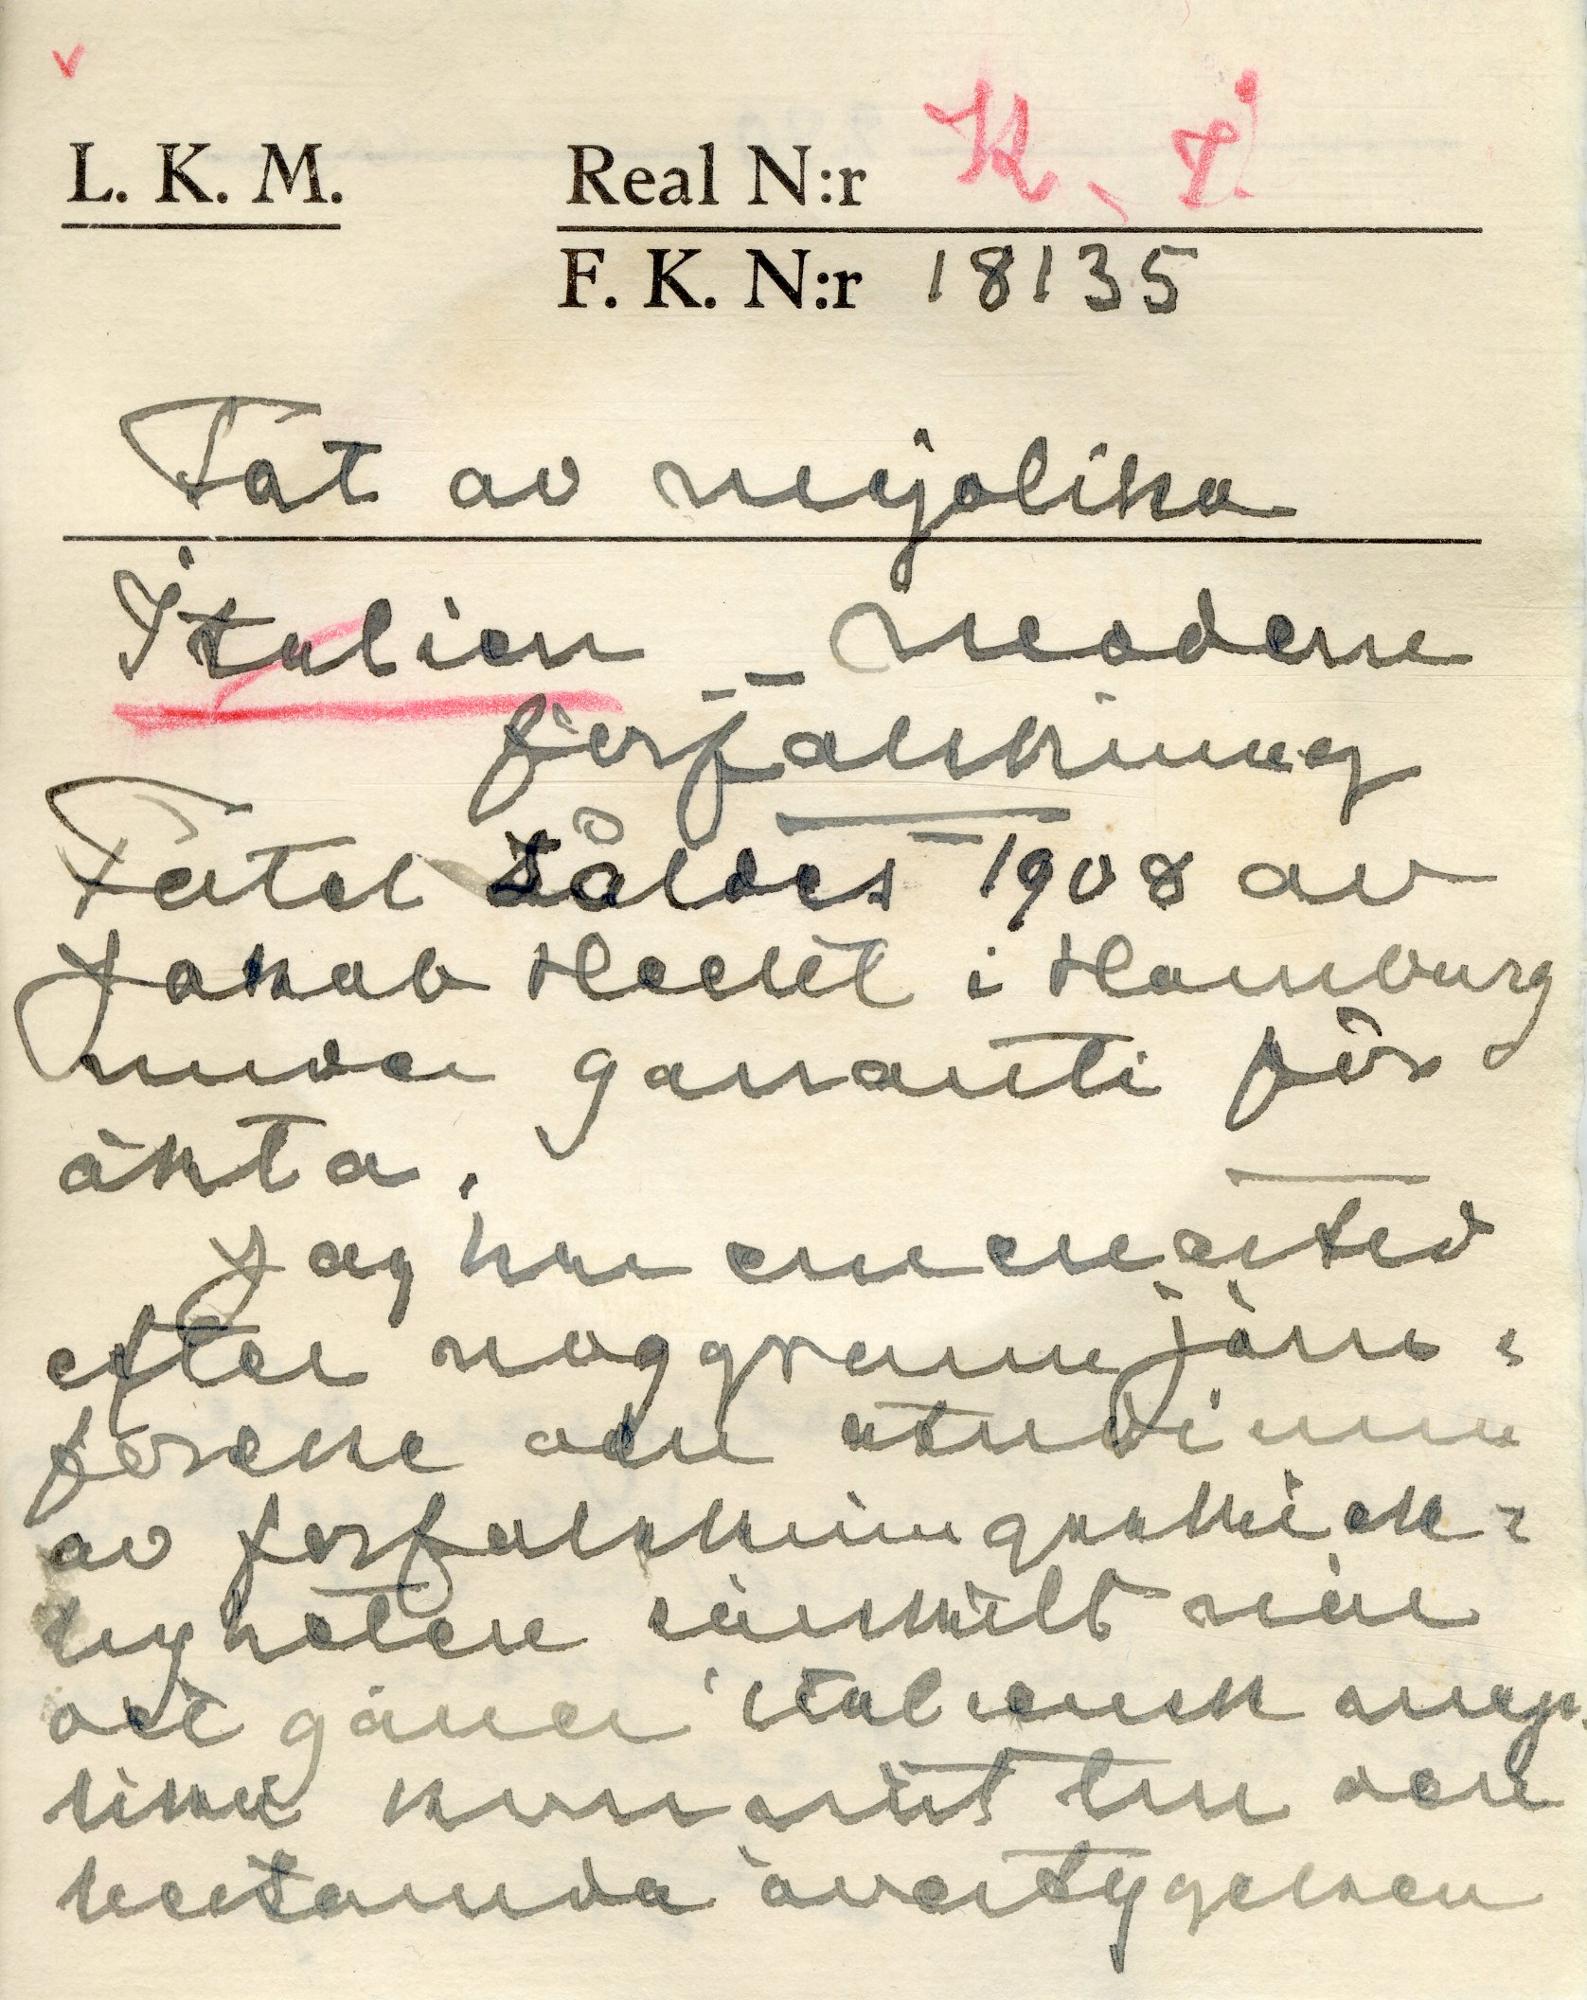 L. K. M.
Real N:r K. I.
F. K. N:r 18135
Fat av majolika
Italien – Modern
förfalskning
Fatet såldes 1908 av
Jakob Hecht i Hamburg
under garanti för
äkta.
Jag har emellertid
efter noggrann jäm-
förelse och studium
av förfalskningsskick-
ligheten särskilt när
det gäller italiensk majo-
lika kommit till den
bestämda övertygelsen